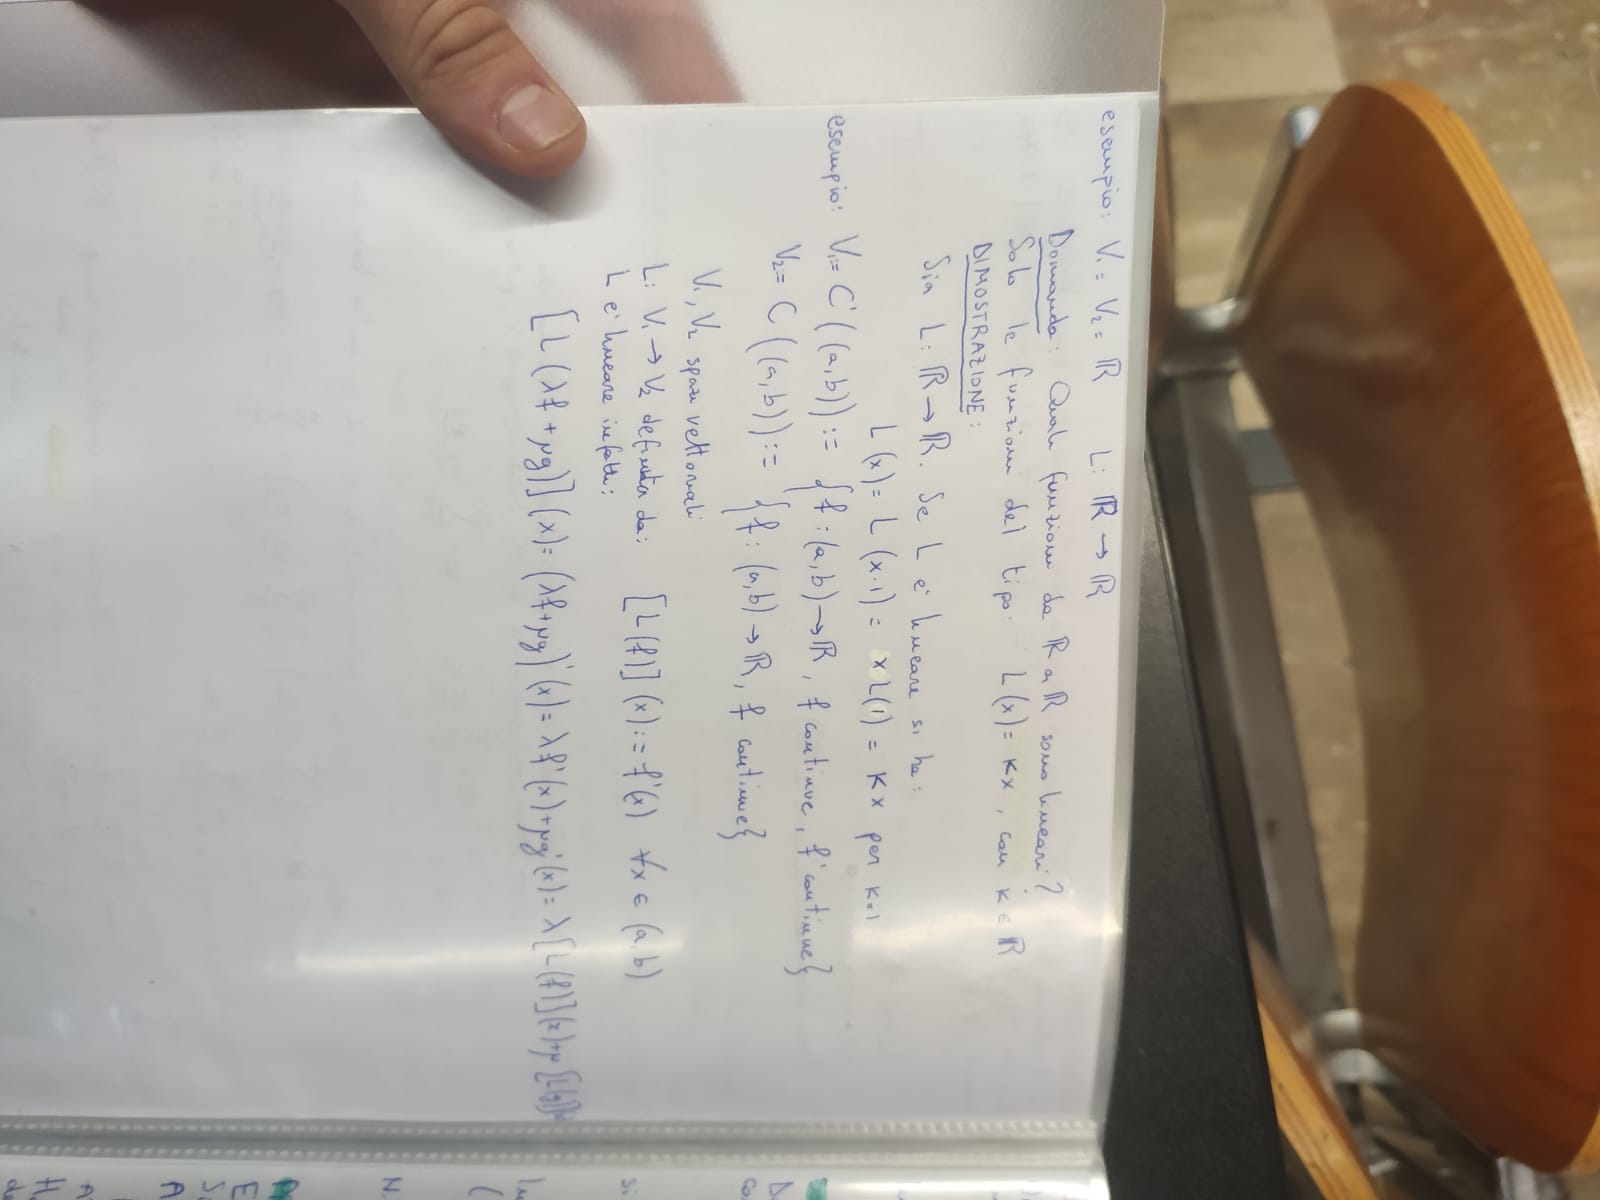 esempio: V₁ = V₂ = ℝ L: ℝ → ℝ
Domanda: Quali funzioni da ℝ a ℝ sono lineari?
Solo le funzioni del tipo: L(x) = Kx, con K ∈ ℝ
DIMOSTRAZIONE:
Sia L: ℝ → ℝ. Se L è lineare si ha:
L(x) = L(x·1) = xL(1) = Kx per K=1
esempio: V₁ = C¹((a,b)) := {f: (a,b) → ℝ, f continue, f' continue}
V₂ = C((a,b)) := {f: (a,b) → ℝ, f continue}
V₁, V₂ spazi vettoriali
L: V₁ → V₂ definita da: [L(f)](x) := f'(x) ∀x ∈ (a,b)
L è lineare infatti:
[L(λf + μg)](x) = (λf+μg)'(x) = λf'(x) + μg'(x) = λ[L(f)](x) + μ[L(g)](x